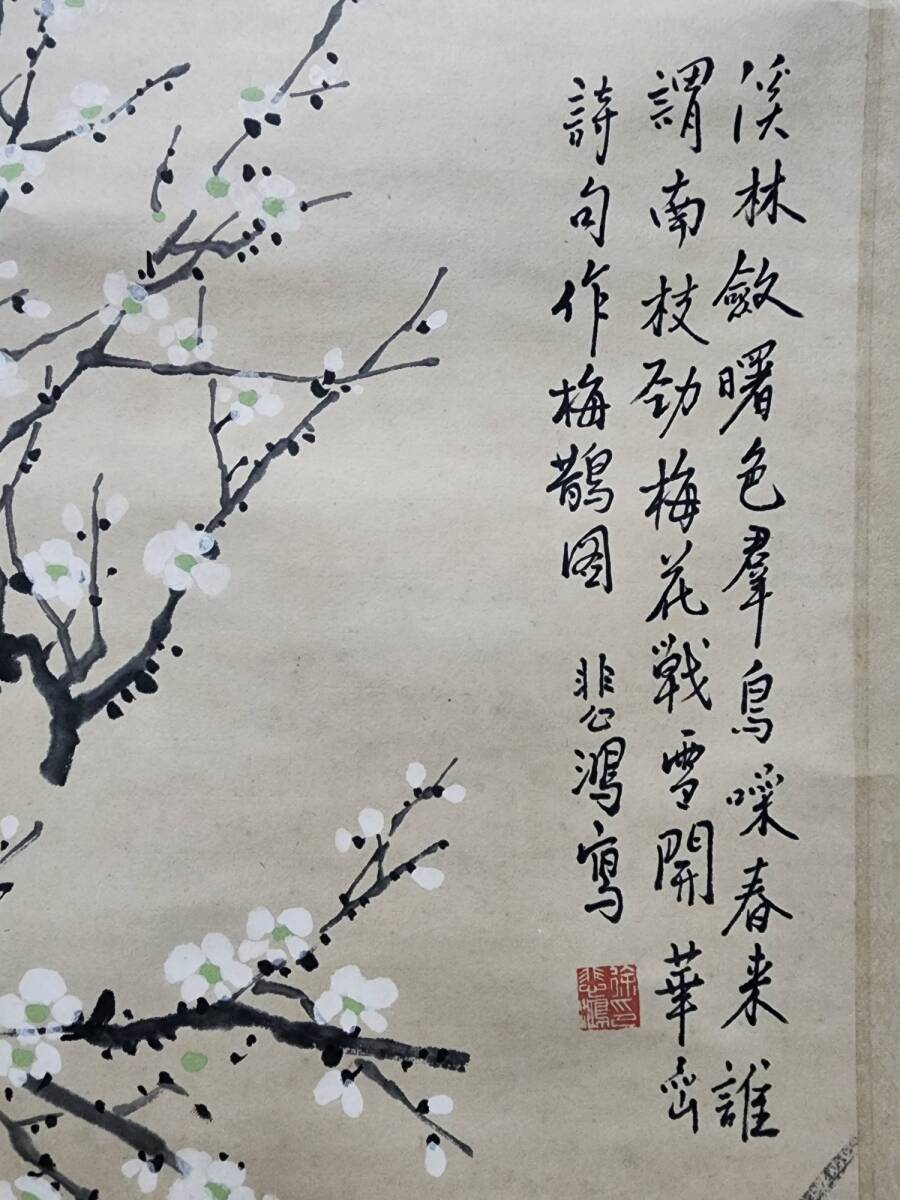 溪林歛曙色羣鳥噪春来誰
謂南枝劲梅花戰雪開華嵒
詩句作梅鵲图 悲鴻寫
徐悲鴻印